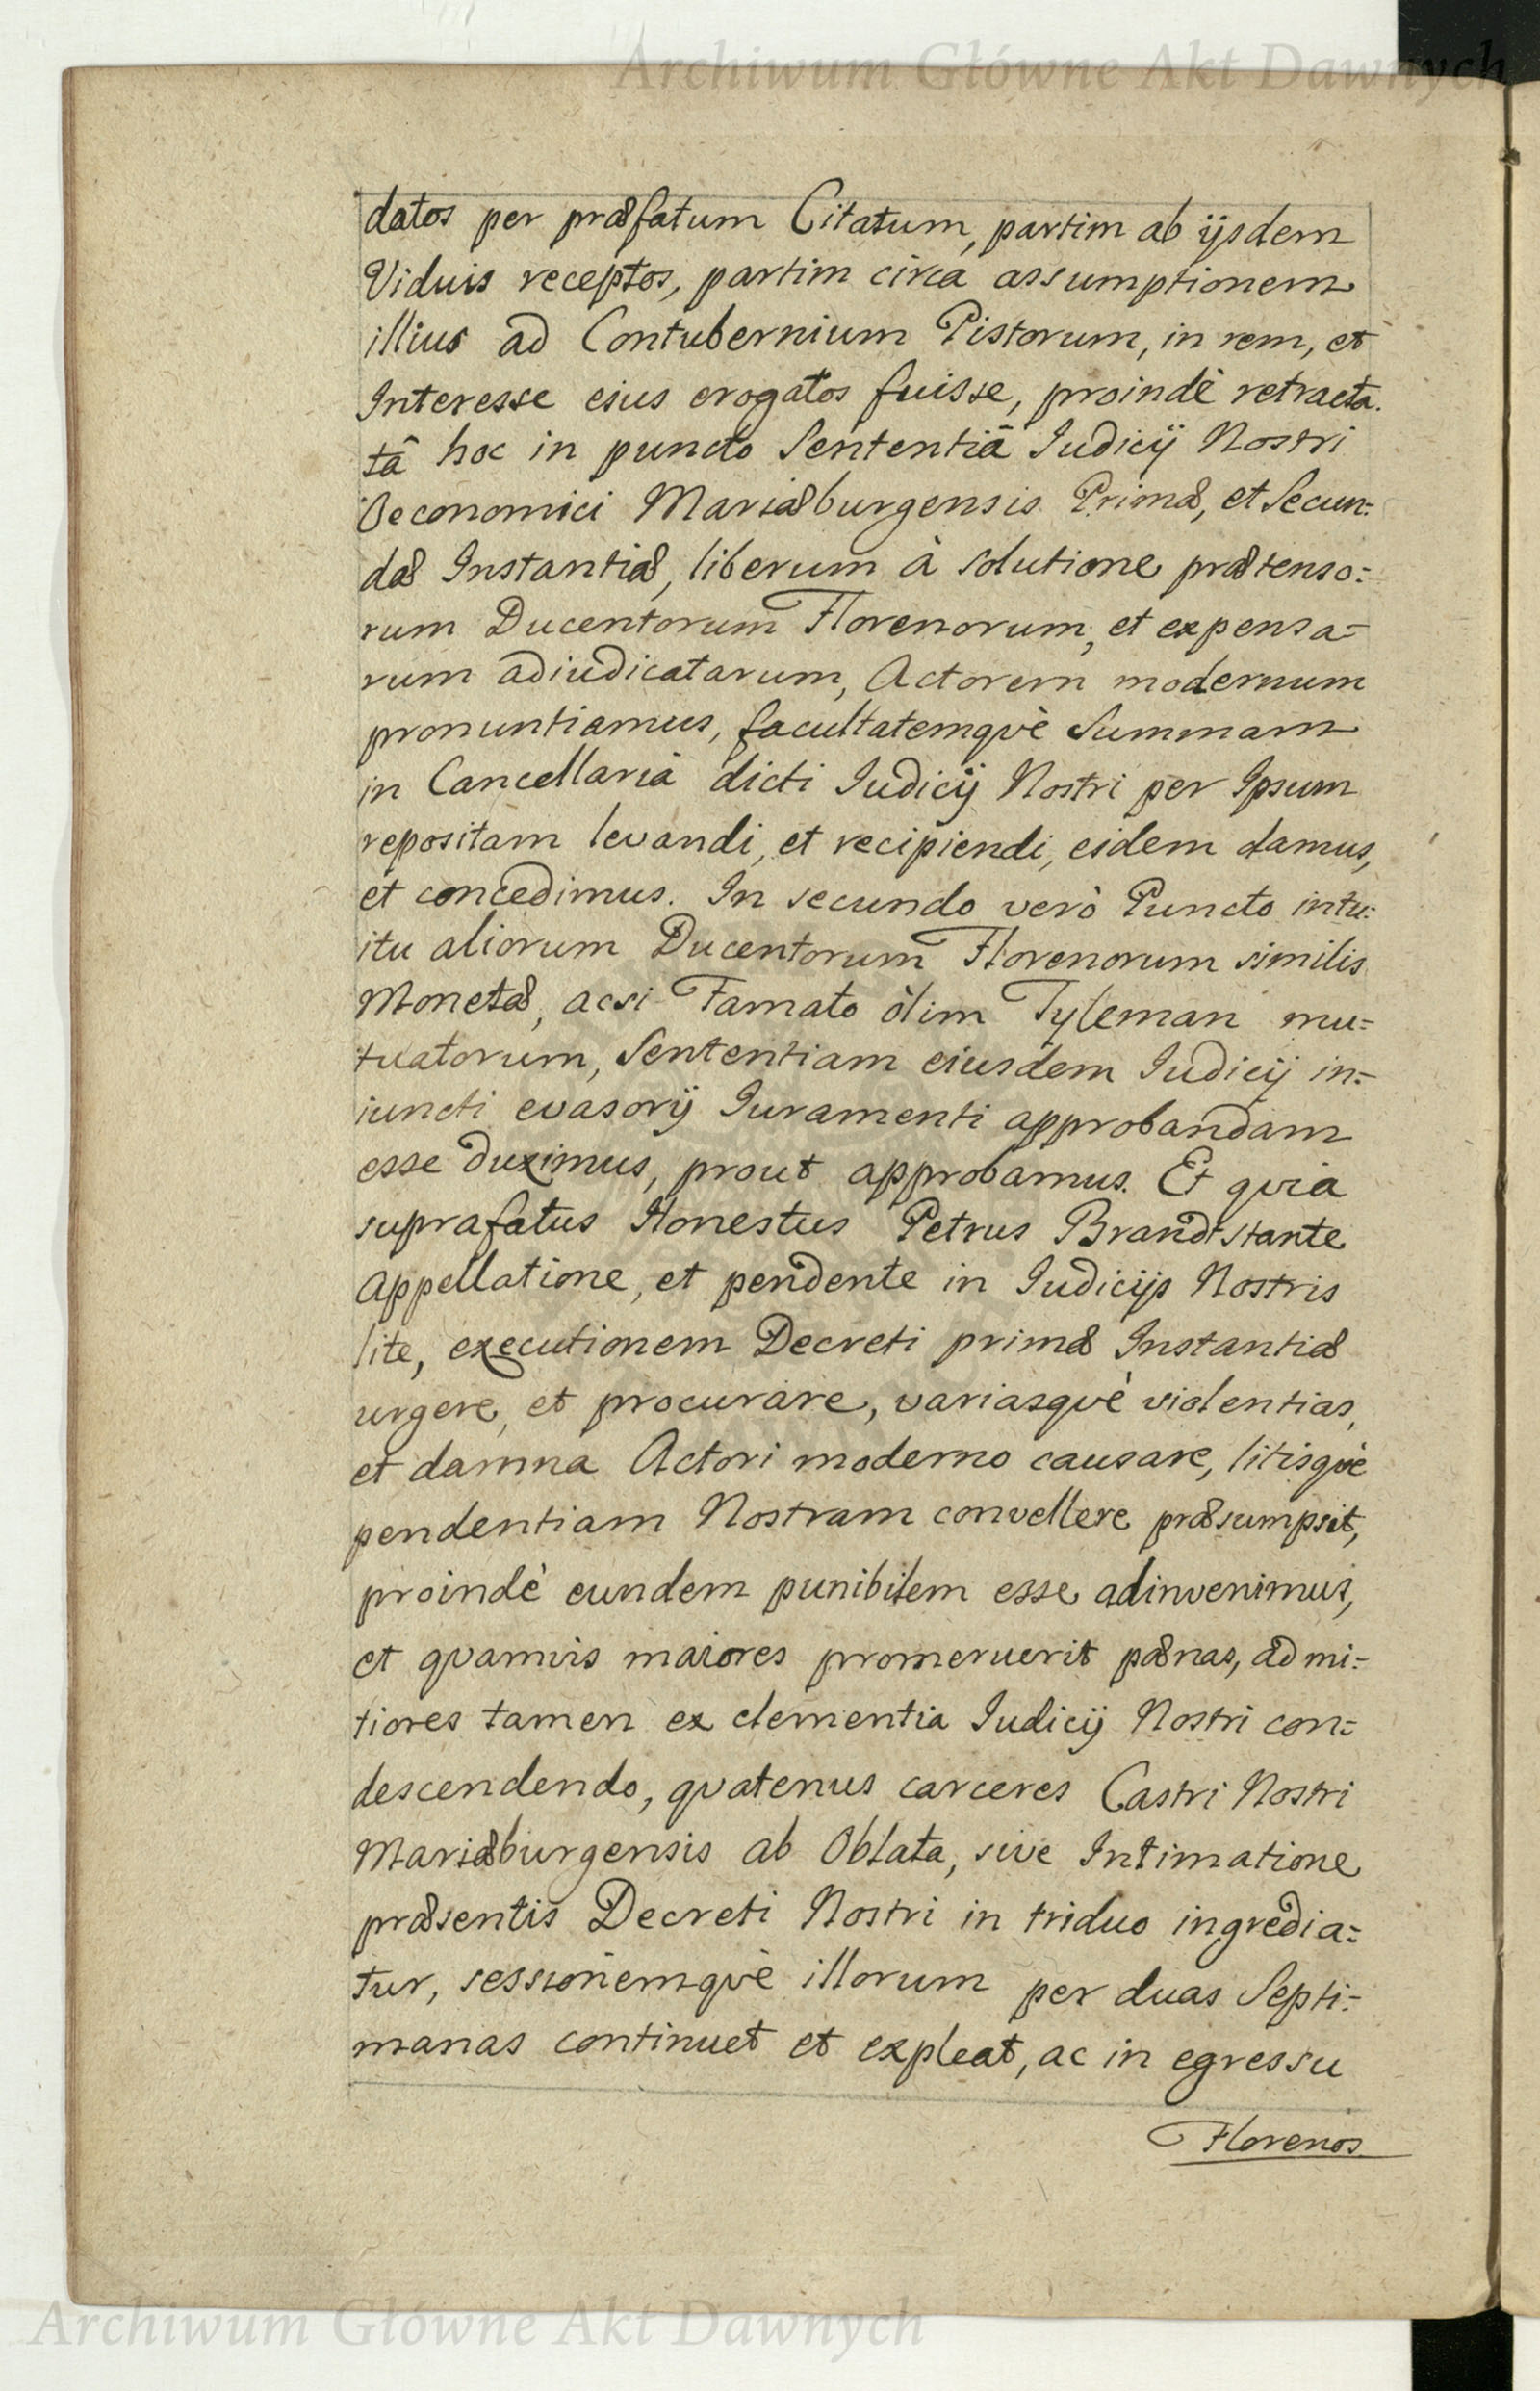 Archiwum Główne Akt Dawnych
datos per præfatum Citatum, partim ab ijsdem
Viduis receptos, partim circa assumptionem
illius ad Contubernium Pistorum, in rem, et
Interesse eius erogatos fuisse, proindè retracta-
tâ hoc in puncto Sententiâ Iudicij Nostri
Oeconomici Mariæburgensis Primæ, et Secun=
dæ Instantiæ, liberum à solutione prætenso=
rum Ducentorum Florenorum, et expensa=
rum adiudicatarum, Actorem modernum
pronuntiamus, facultatemquè Summam
in Cancellariâ dicti Iudicij Nostri per Ipsum
repositam levandi, et recipiendi, eidem damus,
et concedimus. In secundo verò Puncto intu=
itu aliorum Ducentorum Florenorum similis
Monetæ, acsi Famato òlim Tyleman mu=
tuatorum, Sententiam eiusdem Iudicij in=
iuncti evasorij Iuramenti approbandam
esse duximus, prout approbamus. Et quia
suprafatus Honestus Petrus Brandt stante
Appellatione, et pendente in Iudicijs Nostris
lite, executionem Decreti primæ Instantiæ
urgere, et procurare, variasquè violentias,
et damna Actori moderno causare, litisquè
pendentiam Nostram convellere præsumpsit,
proindè eundem punibilem esse adinvenimus,
et quamvis maiores promeruerit pænas, ad mi=
tiores tamen ex clementia Iudicij Nostri con=
descendendo, quatenus carceres Castri Nostri
Mariæburgensis ab Oblata, sive Intimatione
præsentis Decreti Nostri in triduo ingredia=
tur, sessionemquè illorum per duas Septi=
manas continuet et expleat, ac in egressu
Florenos
Archiwum Główne Akt Dawnych